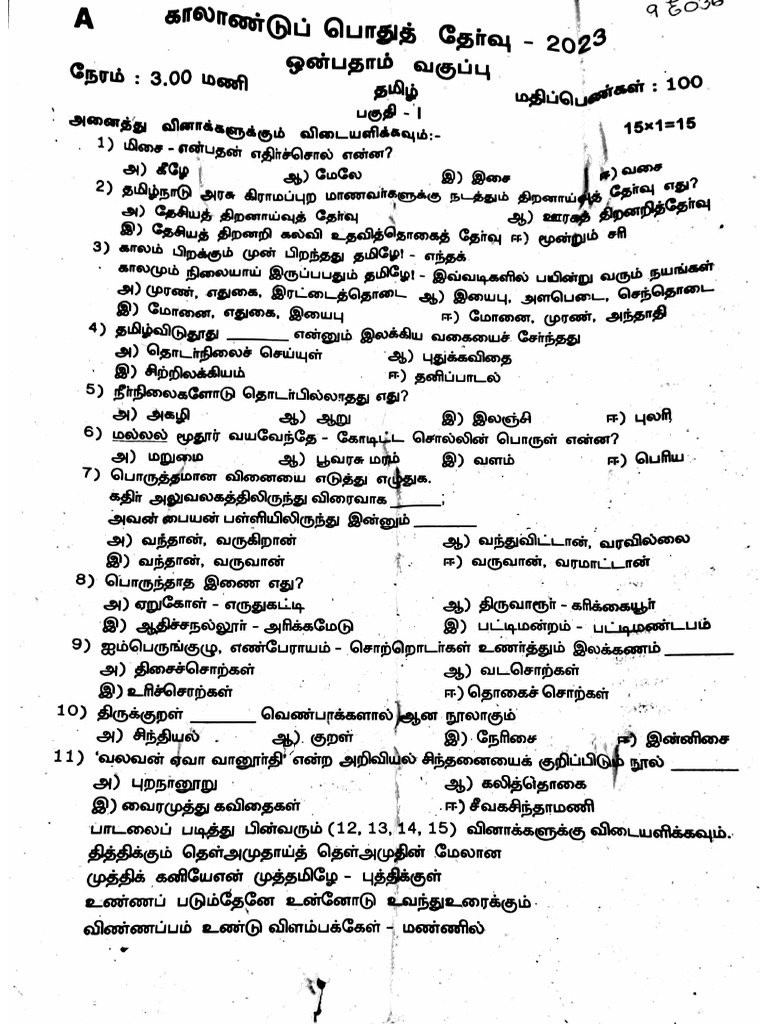 A
காலாண்டுப் பொதுத் தேர்வு - 2023
ஒன்பதாம் வகுப்பு
நேரம் : 3.00 மணி
தமிழ்
மதிப்பெண்கள் : 100
பகுதி - I
அனைத்து வினாக்களுக்கும் விடையளிக்கவும்:-
15×1=15
1) மிசை - என்பதன் எதிர்ச்சொல் என்ன?
அ) கீழே ஆ) மேலே இ) இசை ஈ) வசை
2) தமிழ்நாடு அரசு கிராமப்புற மாணவர்களுக்கு நடத்தும் திறனாய்வுத் தேர்வு எது?
அ) தேசியத் திறனாய்வுத் தேர்வு ஆ) ஊரகத் திறனறித்தேர்வு
இ) தேசியத் திறனறி கல்வி உதவித்தொகைத் தேர்வு ஈ) மூன்றும் சரி
3) காலம் பிறக்கும் முன் பிறந்தது தமிழே! - எந்தக்
காலமும் நிலையாய் இருப்பபதும் தமிழே! - இவ்வடிகளில் பயின்று வரும் நயங்கள்
அ) முரண், எதுகை, இரட்டைத்தொடை ஆ) இயைபு, அளபெடை, செந்தொடை
இ) மோனை, எதுகை, இயைபு ஈ) மோனை, முரண், அந்தாதி
4) தமிழ்விடுதூது ________ என்னும் இலக்கிய வகையைச் சேர்ந்தது
அ) தொடர்நிலைச் செய்யுள் ஆ) புதுக்கவிதை
இ) சிற்றிலக்கியம் ஈ) தனிப்பாடல்
5) நீர்நிலைகளோடு தொடர்பில்லாதது எது?
அ) அகழி ஆ) ஆறு இ) இலஞ்சி ஈ) புலரி
6) மல்லல் மூதூர் வயவேந்தே - கோடிட்ட சொல்லின் பொருள் என்ன?
அ) மறுமை ஆ) பூவரசு மரம் இ) வளம் ஈ) பெரிய
7) பொருத்தமான வினையை எடுத்து எழுதுக.
கதிர் அலுவலகத்திலிருந்து விரைவாக ______;
அவன் பையன் பள்ளியிலிருந்து இன்னும் ________
அ) வந்தான், வருகிறான் ஆ) வந்துவிட்டான், வரவில்லை
இ) வந்தான், வருவான் ஈ) வருவான், வரமாட்டான்
8) பொருந்தாத இணை எது?
அ) ஏறுகோள் - எருதுகட்டி ஆ) திருவாரூர் - கரிக்கையூர்
இ) ஆதிச்சநல்லூர் - அரிக்கமேடு இ) பட்டிமன்றம் - பட்டிமண்டபம்
9) ஐம்பெருங்குழு, எண்பேராயம் - சொற்றொடர்கள் உணர்த்தும் இலக்கணம் ________
அ) திசைச்சொற்கள் ஆ) வடசொற்கள்
இ) உரிச்சொற்கள் ஈ) தொகைச் சொற்கள்
10) திருக்குறள் ________ வெண்பாக்களால் ஆன நூலாகும்
அ) சிந்தியல் ஆ) குறள் இ) நேரிசை ஈ) இன்னிசை
11) 'வலவன் ஏவா வானூர்தி' என்ற அறிவியல் சிந்தனையைக் குறிப்பிடும் நூல் ________
அ) புறநானூறு ஆ) கலித்தொகை
இ) வைரமுத்து கவிதைகள் ஈ) சீவகசிந்தாமணி
பாடலைப் படித்து பின்வரும் (12, 13, 14, 15) வினாக்களுக்கு விடையளிக்கவும்.
தித்திக்கும் தெள்அமுதாய்த் தெள்அமுதின் மேலான
முத்திக் கனியேஎன் முத்தமிழே - புத்திக்குள்
உண்ணப் படும்தேனே உன்னோடு உவந்துஉரைக்கும்
விண்ணப்பம் உண்டு விளம்பக்கேள் - மண்ணில்